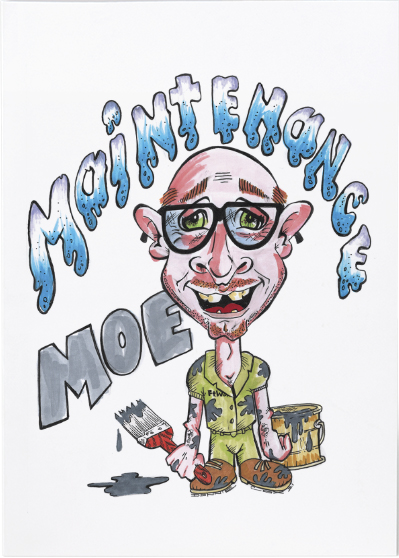 MaiNTENaNCE
MOE